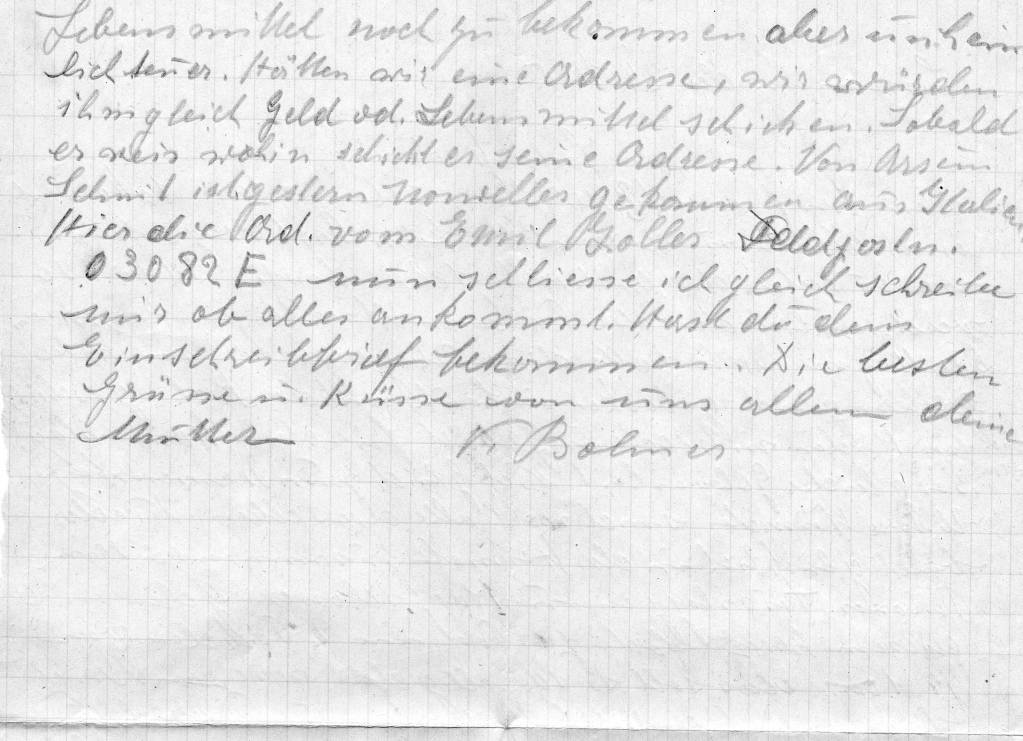 Lebensmittel noch zu bekommen aber unheim
lich teuer. Hätten wir eine Adresse, wir würden
ihm gleich Geld od. Lebensmittel schicken. Sobald
er weis wohin schickt er seine Adresse. Von Arsen
Schmit ist gestern nouvelles gekommen aus Italien
Hier die Ad. vom Emil Goller Feldpostn.
03082 E nun schliesse ich gleich schreibe
mir ob alles ankommt. Hast du dein
Einschreibbrief bekommen. Die besten
Grüsse u. Küsse von uns allen deine
Mutter